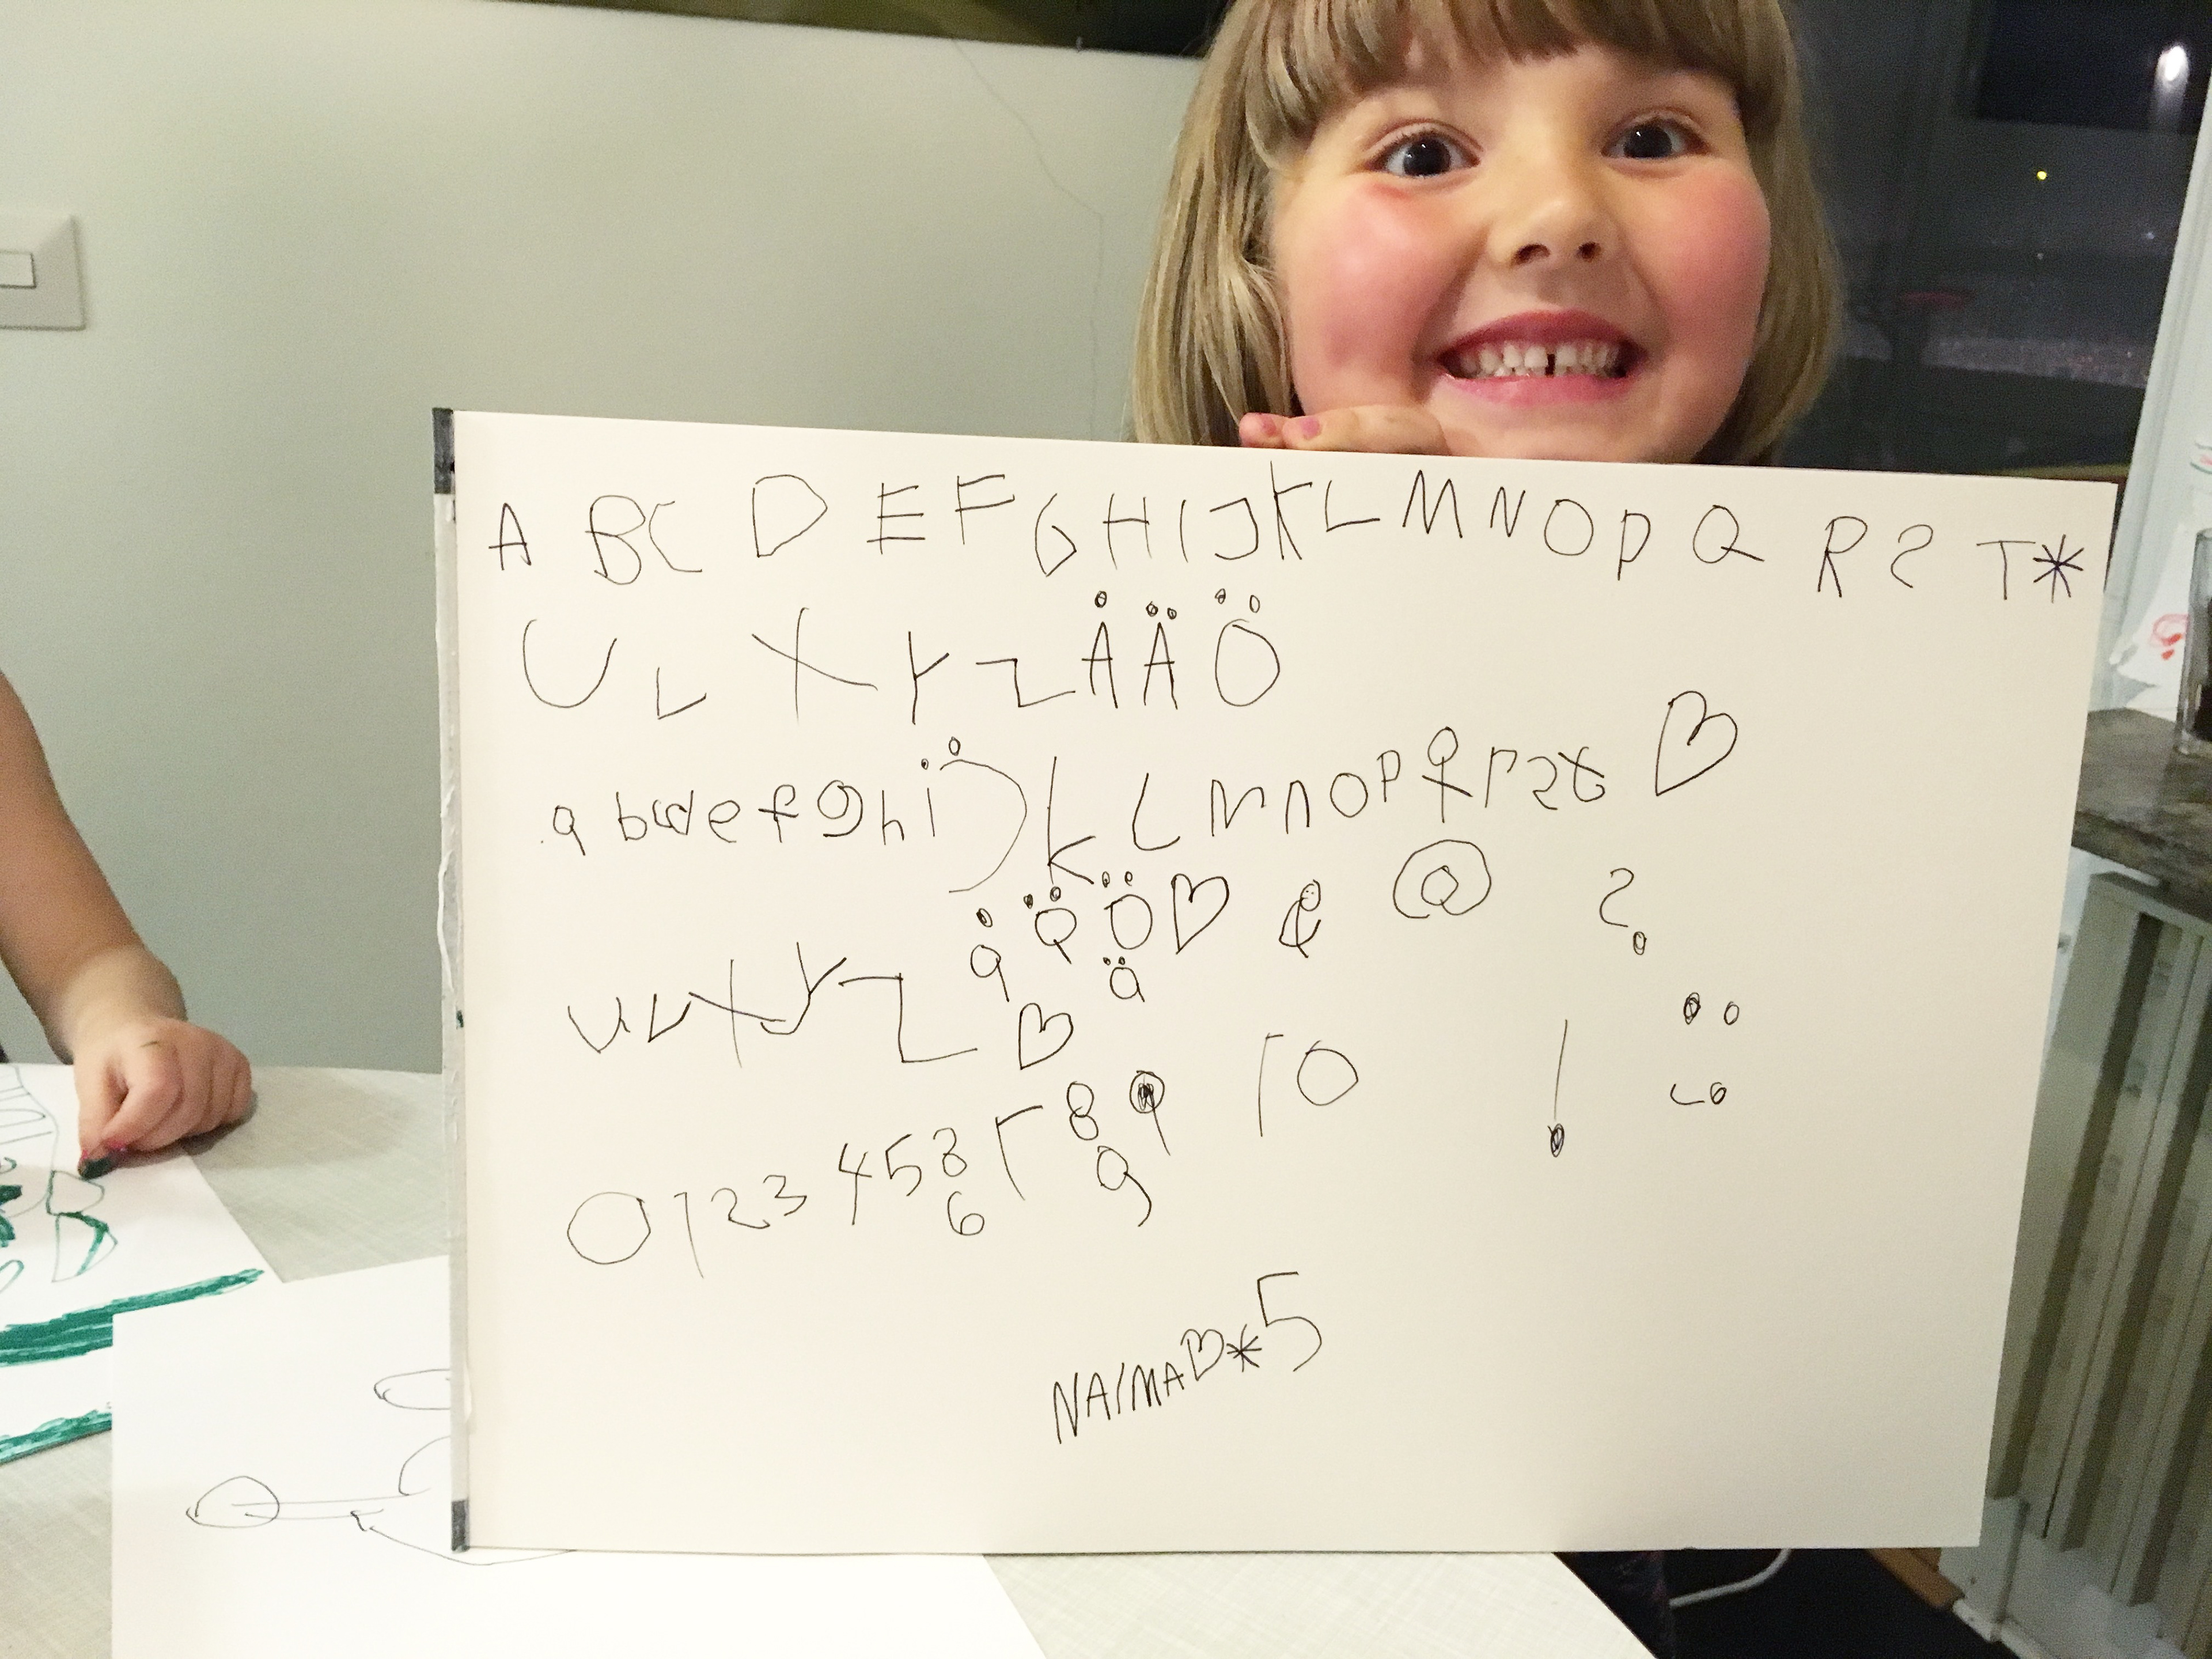 A B C D E F G H I J K L M N O P Q R S T *
U V X Y Z Å Ä Ö
a b c d e f g h i j k l m n o p q r s t ♡
å ä ö ♡ & @ ?
ä
u v x y z ♡
! : ;
0 1 2 3 4 5 8 7 8 9 10
6 9
NAIMA ♡ * 5